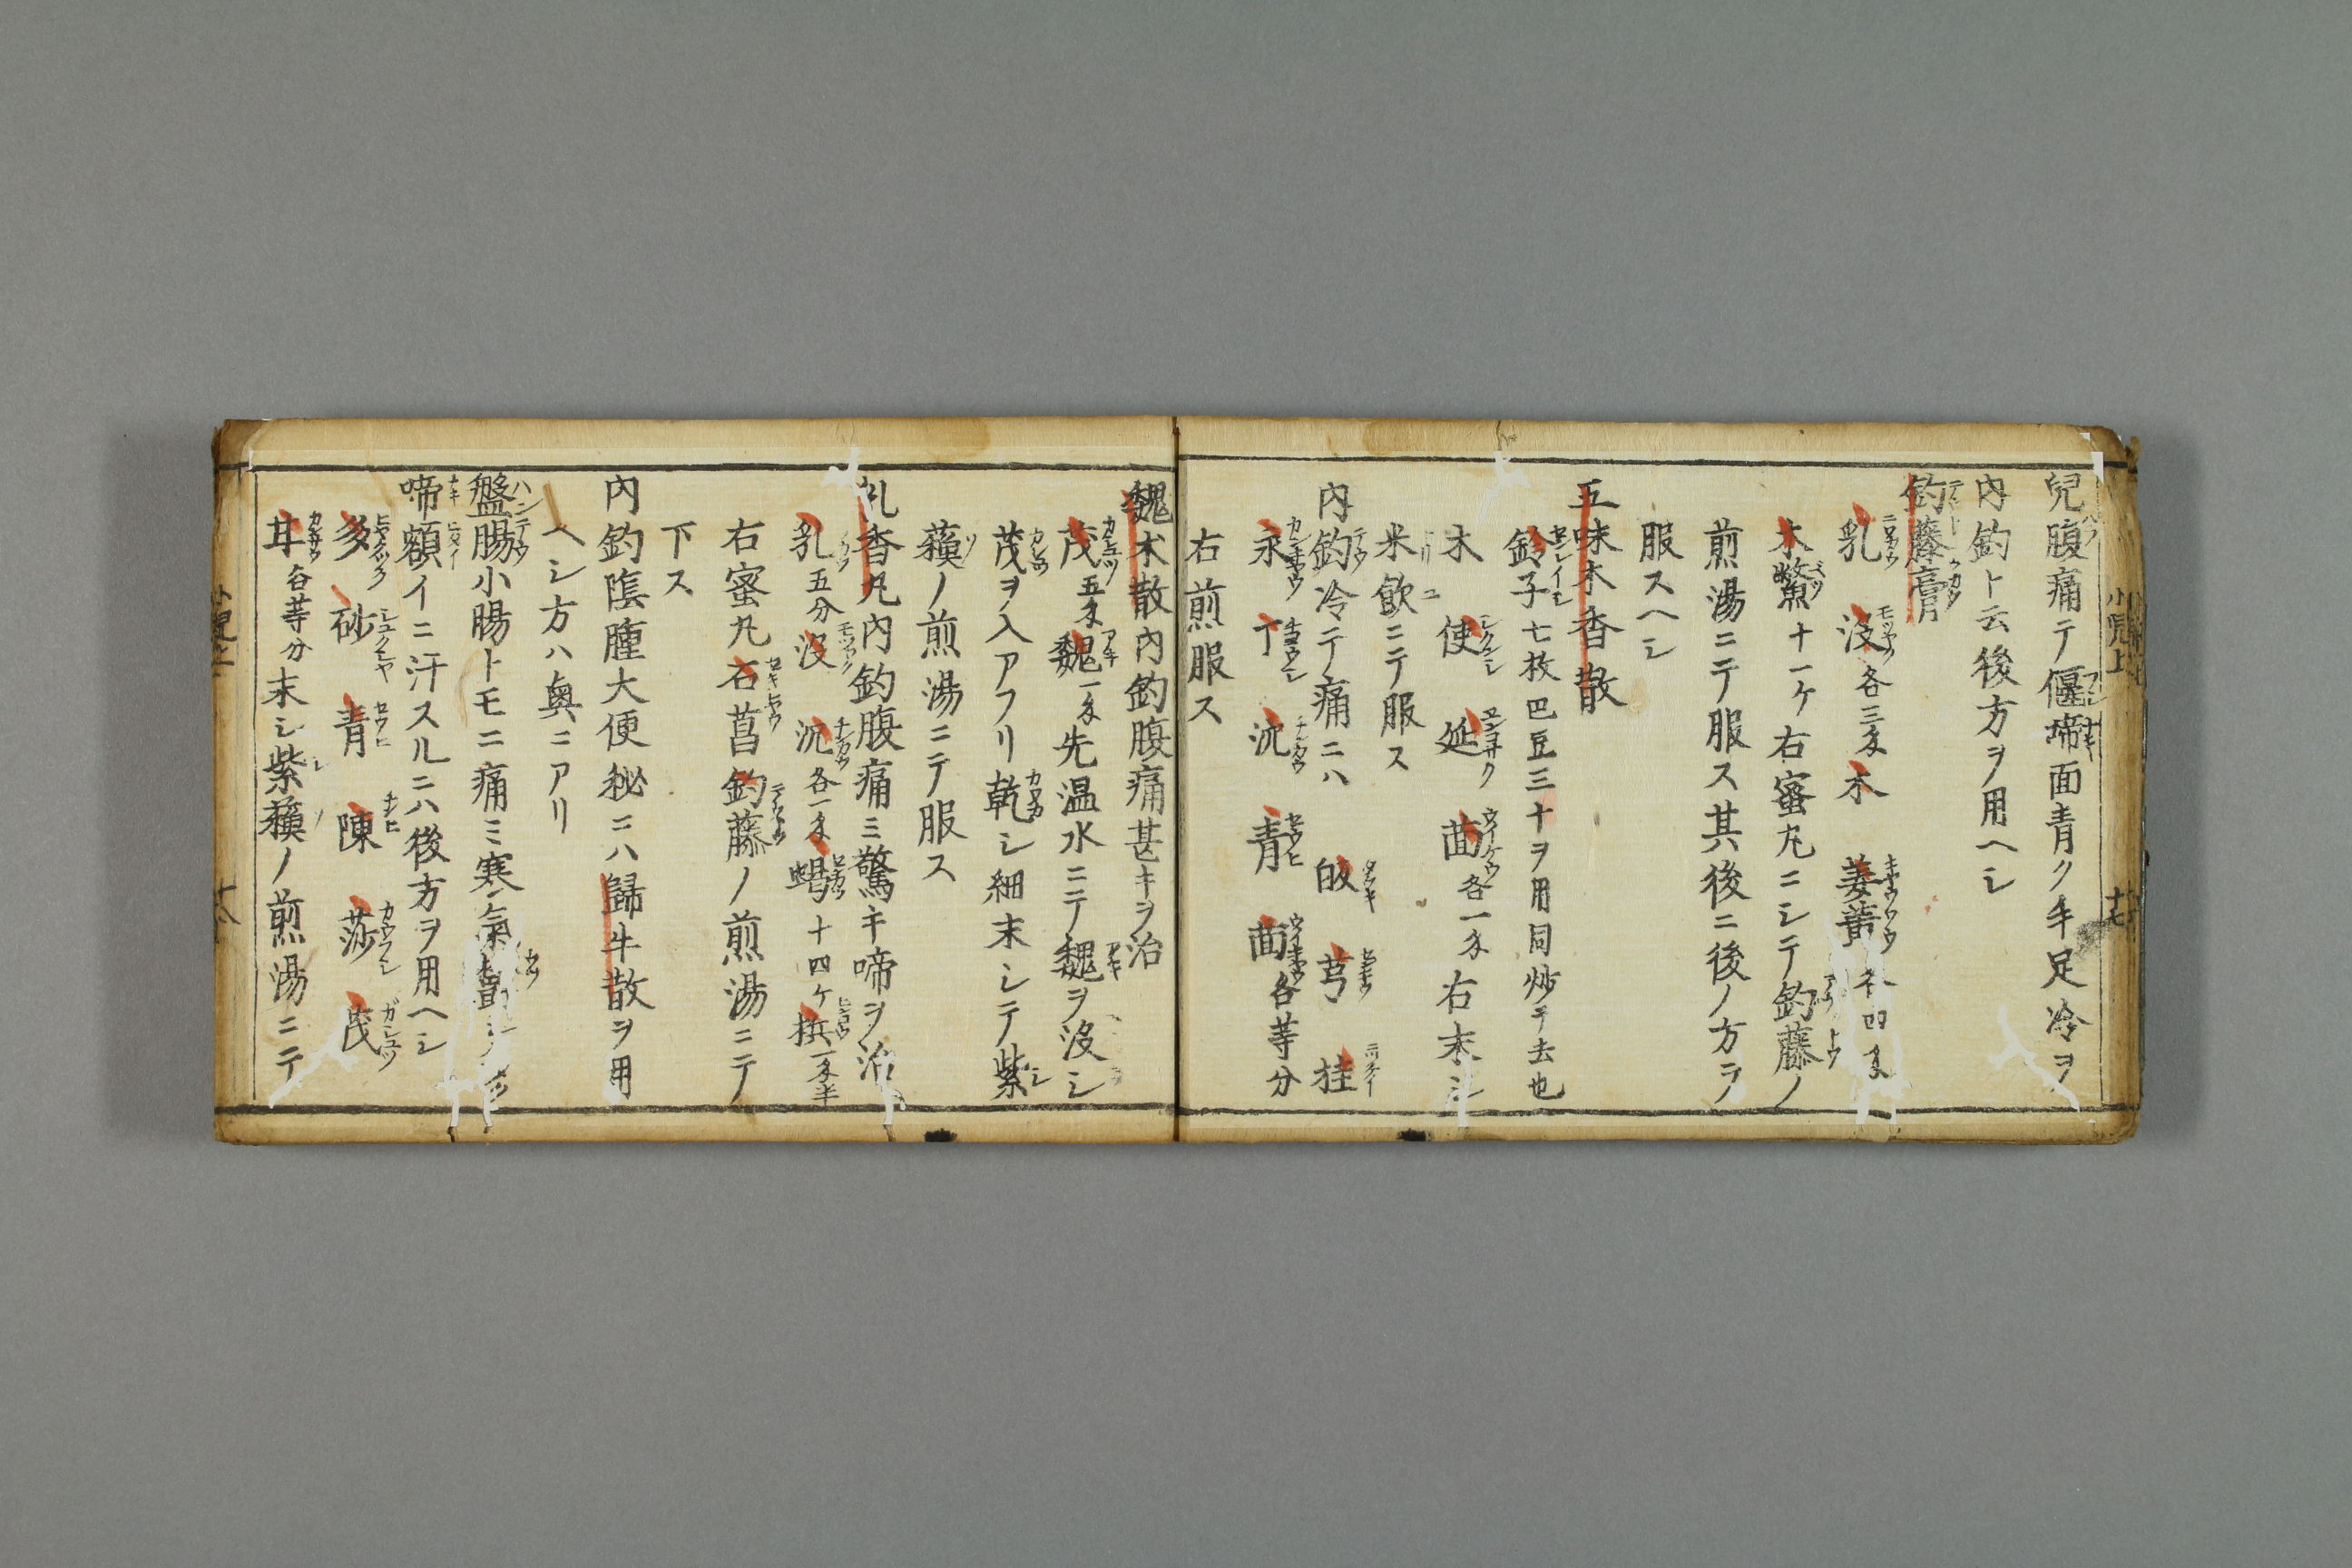 兒腹痛テ偃啼面青ク手足冷ヲ
内釣ト云後方ヲ用ヘシ
釣藤膏
乳 没各三匁木 姜黄各四匁
木鱉十一ケ右蜜丸ニシテ釣藤ノ
煎湯ニテ服ス其後ニ後ノ方ヲ
服スヘシ
五味木香散
鈴子七枚巴豆三十ヲ用同炒テ去也
木 使 延 茴各一匁右末シ
米飲ニテ服ス
内釣冷テ痛ニハ 芎 桂
丁 沉 青 茴各等分
右煎服ス
魏朮散内釣腹痛甚キヲ治
茂五匁魏一匁先温水ニテ魏ヲ浸シ
茂ヲ入アフリ乾シ細末シテ紫
蘓ノ煎湯ニテ服ス
乳香丸内釣腹痛ミ驚キ啼ヲ治
乳五分没 沉各一匁蝎十四ケ梹一匁半
右蜜丸石菖釣藤ノ煎湯ニテ
下ス
内釣陰腫大便秘ニハ歸牛散ヲ用
ヘシ方ハ奥ニアリ
盤腸小腸トモニ痛ミ寒氣
啼額イニ汗スルニハ後方ヲ用ヘシ
砂 青 陳 莎 茂
各等分末シ紫蘓ノ煎湯ニテ
小児上
十七